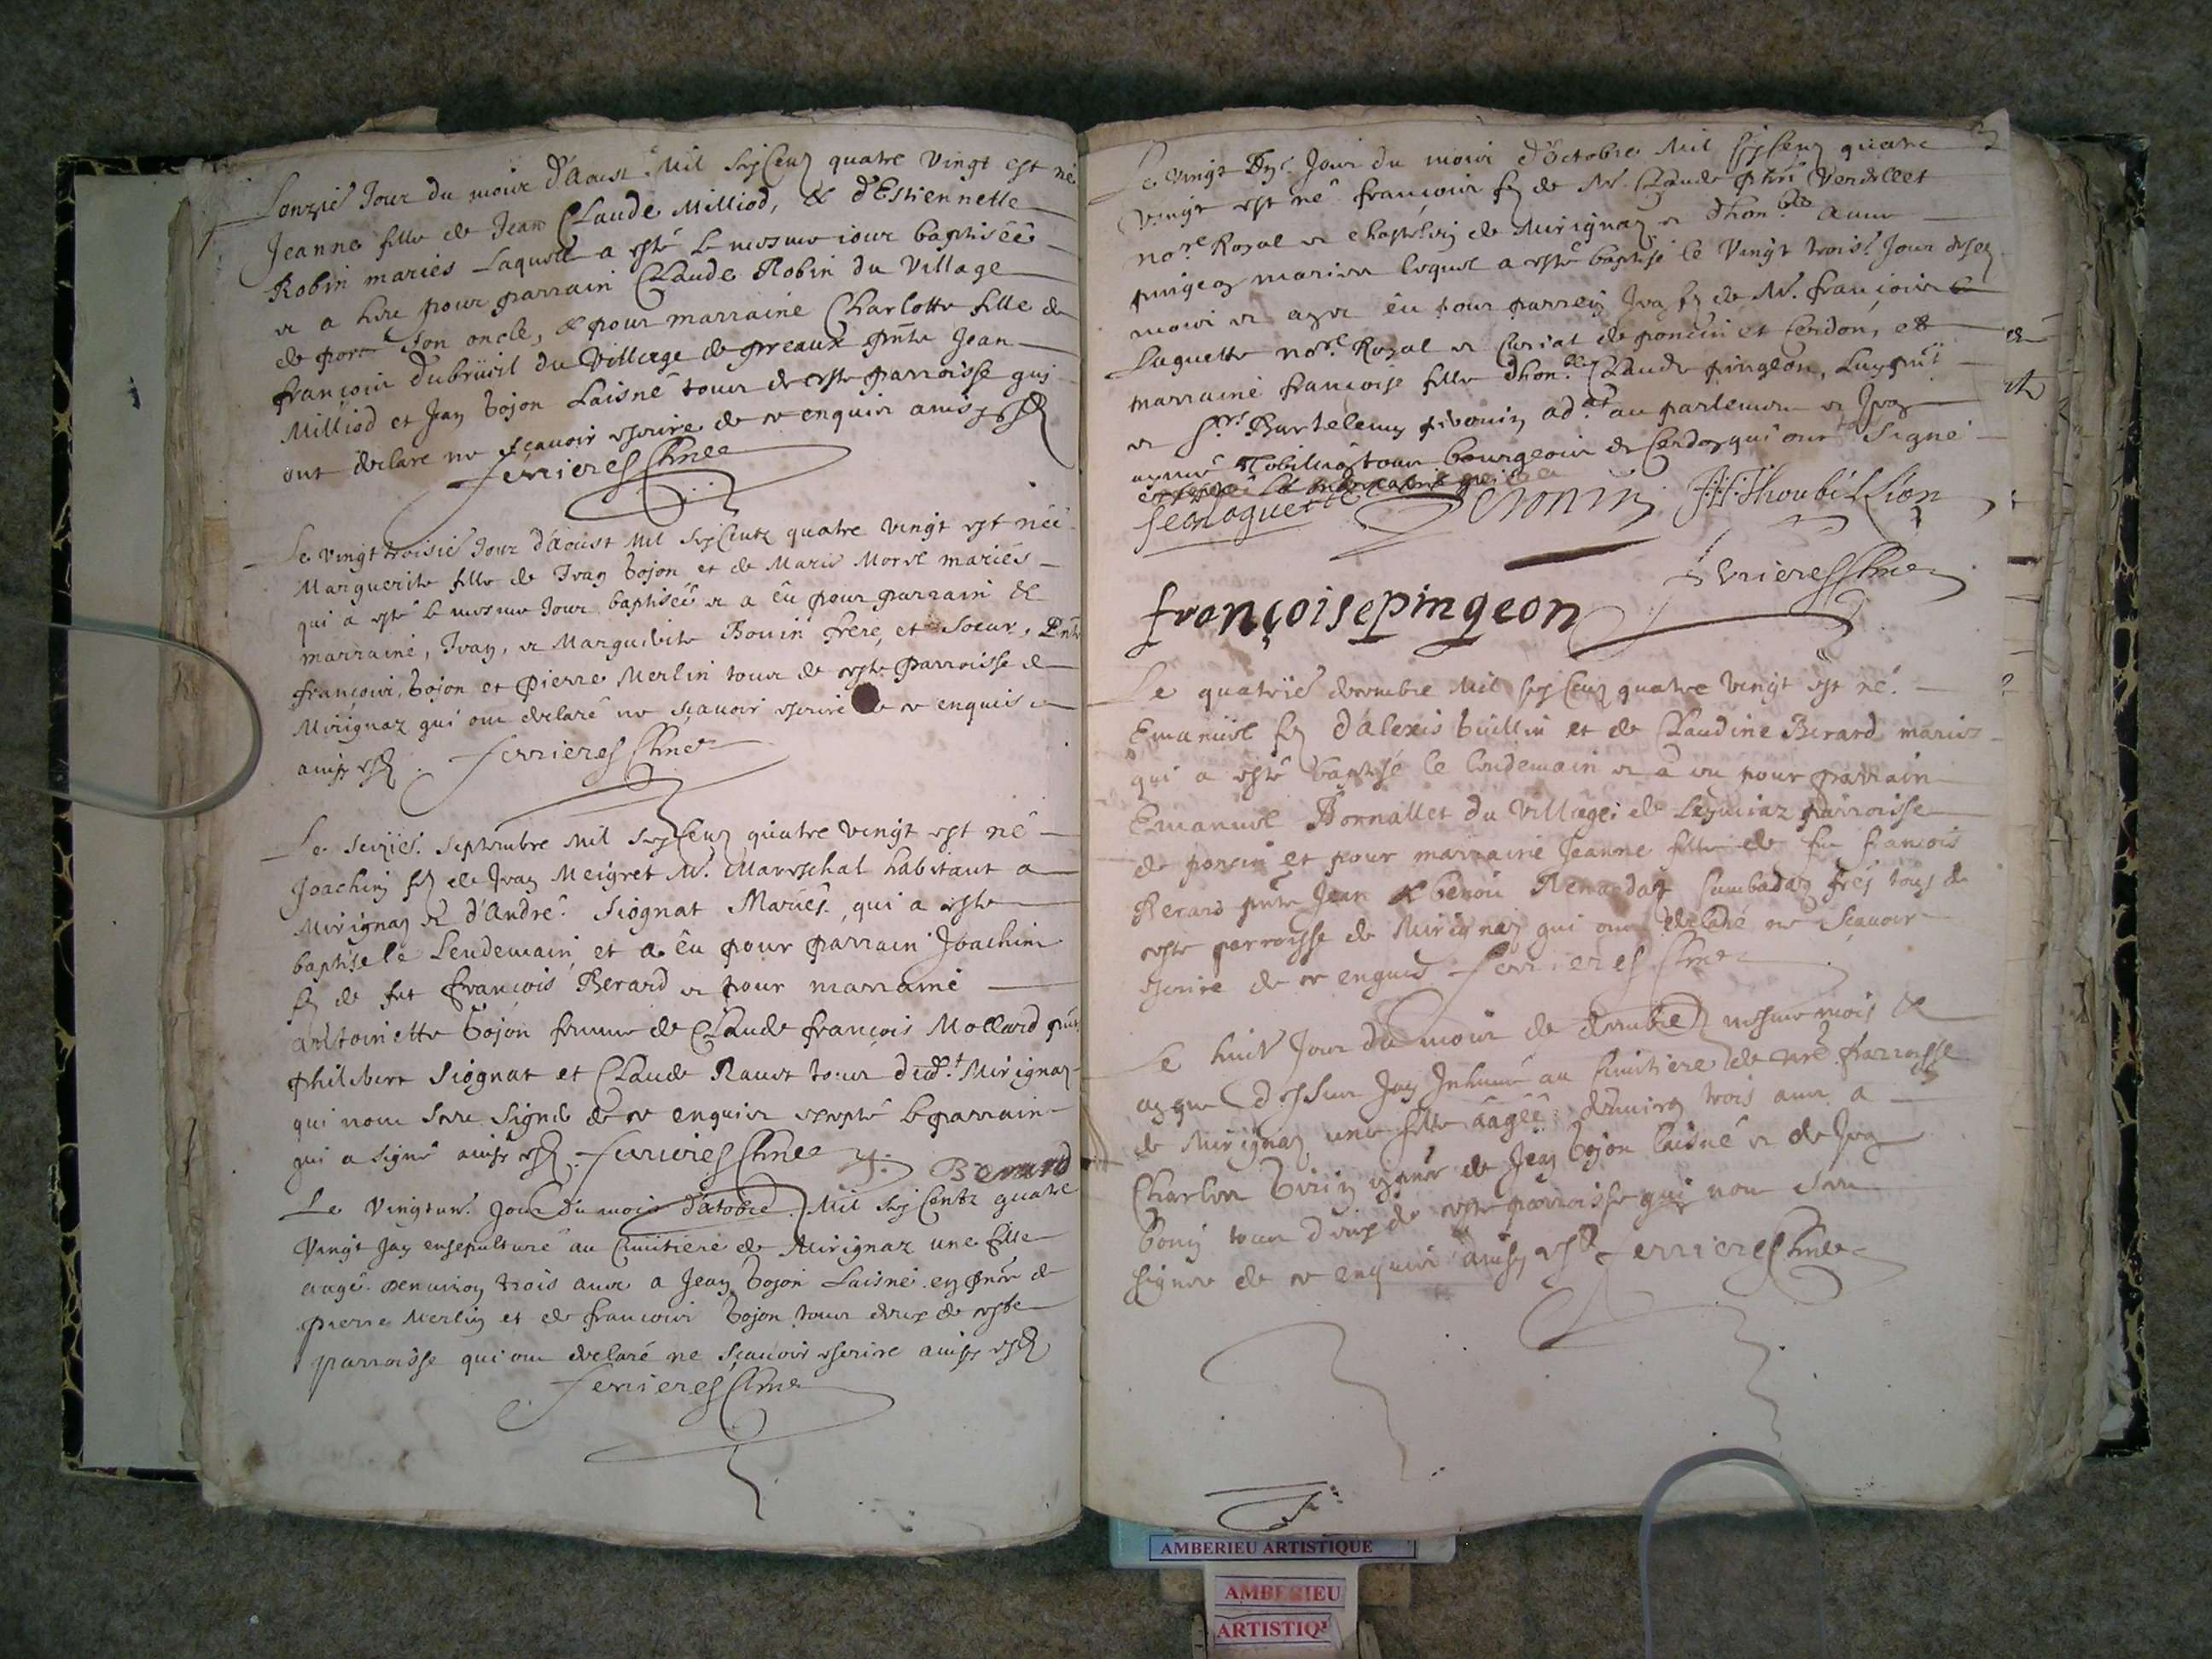 Lonzie Jour du mois d'Aoust Mil six Cens quatre vingt est né
Jeanne fille de Jean Claude Milliod, & d'Estiennette
Robin mariés Laquelle a esté le mesme iour baptiséé
et a heu pour parrain Claude Robin du Village
de port son oncle, & pour marraine Charlotte fille de
françois dubrüeil du Village de preaux pnts Jean
Milliod et Jean bojon Laisné tous de ceste parroisse qui
ont declaré ne sçauoir escrire de ce enquis
ferrieres
Le vingt troisie Jour d'Aoust Mil six Centz quatre vingt est néé
Marguerite fille de Jean bojon et de Marie Morel mariés
qui a esté le mesme Jour baptiséé et a eü pour parrain &
marraine, Jean, et Marguerite Bouin frere, et Soeur, Pnts
françois, bojon et Pierre Merlin tous de ceste Parroisse de
Mirignaz qui ont declaré ne sçauoir escrire de ce enquis
ferrieres
Le seizie. septembre Mil six Cens quatre vingt est né
Joachin fz de Jean Meigret M. Mareschal habitant a
Mirignaz & d'André Siognat Mariés, qui a esté
baptisé le Lendemain, et a eü pour parrain Joachim
fz de fut françois Berard et pour marraine
antoinette bojon femme de Claude françois Mollard pnts
philibert Siognat et Claude Ravet tous dud.t Mirignaz
qui nont sceu signé de ce enquis excepté le parrain
qui a signé ferrieres J. Berard
Le Vingtun. Jour du mois d'actobre Mil six Centz quatre
Vingt Jay ensepulturé au Cimitiere de Mirignaz une fille
aagé denuiron trois ans a Jean bojon Laisné en pnce de
pierre Merlin et de francois bojon tous deux de ceste
parroisse qui ont declaré ne sçauoir escrire
ferrieres
Le vingt Jour du mois d'octobre Mil six Cens quatre
Vingt est né françois fz de M. Claude Verdellet
no.re Royal et de Mirignaz et d'hon.ble anne
pingeon mariés lequel a esté baptisé le Vingt trois. Jour
mois et an et eü pour parrein Jean fz de M. françois
Laguette no.re Royal et Curial de poncin et Cerdon, et
marraine francoise fille d'hon.ble Claude pingeon,
et Bartelemy ad.at au parlement et Jean
tous bourgeois de Cerdon qui ont Signé
Jean laguette
françoise pingeon ferrieres
Le quatrie decembre Mil six Cens quatre vingt est né.
Emanuel fz d'alexis buillin et de Claudine Berard mariés
qui a esté baptisé le lendemain et a eu pour parrain
Emanuel Bornallet du Village de Leymiaz parroisse
de poncin et pour marraine Jeanne fille de fu francois
Berard pnts Jean & benoit tous de
ceste parroisse de Mirignaz qui ont declaré ne sçauoir
escrire de ce enquis ferrieres
Le huit Jour du mois de decembre mesme mois &
an que dessus Jay Inhumé au Cimitiere de nre. parroisse
de Mirignaz une fille aagéé denuiron trois ans a
Charles de Jean bojon laisné et de Jean
bouin tous deux de ceste parroisse qui nont sceu
signer de ce enquis ferrieres
AMBERIEU ARTISTIQUE
AMBERIEU
ARTISTIQ